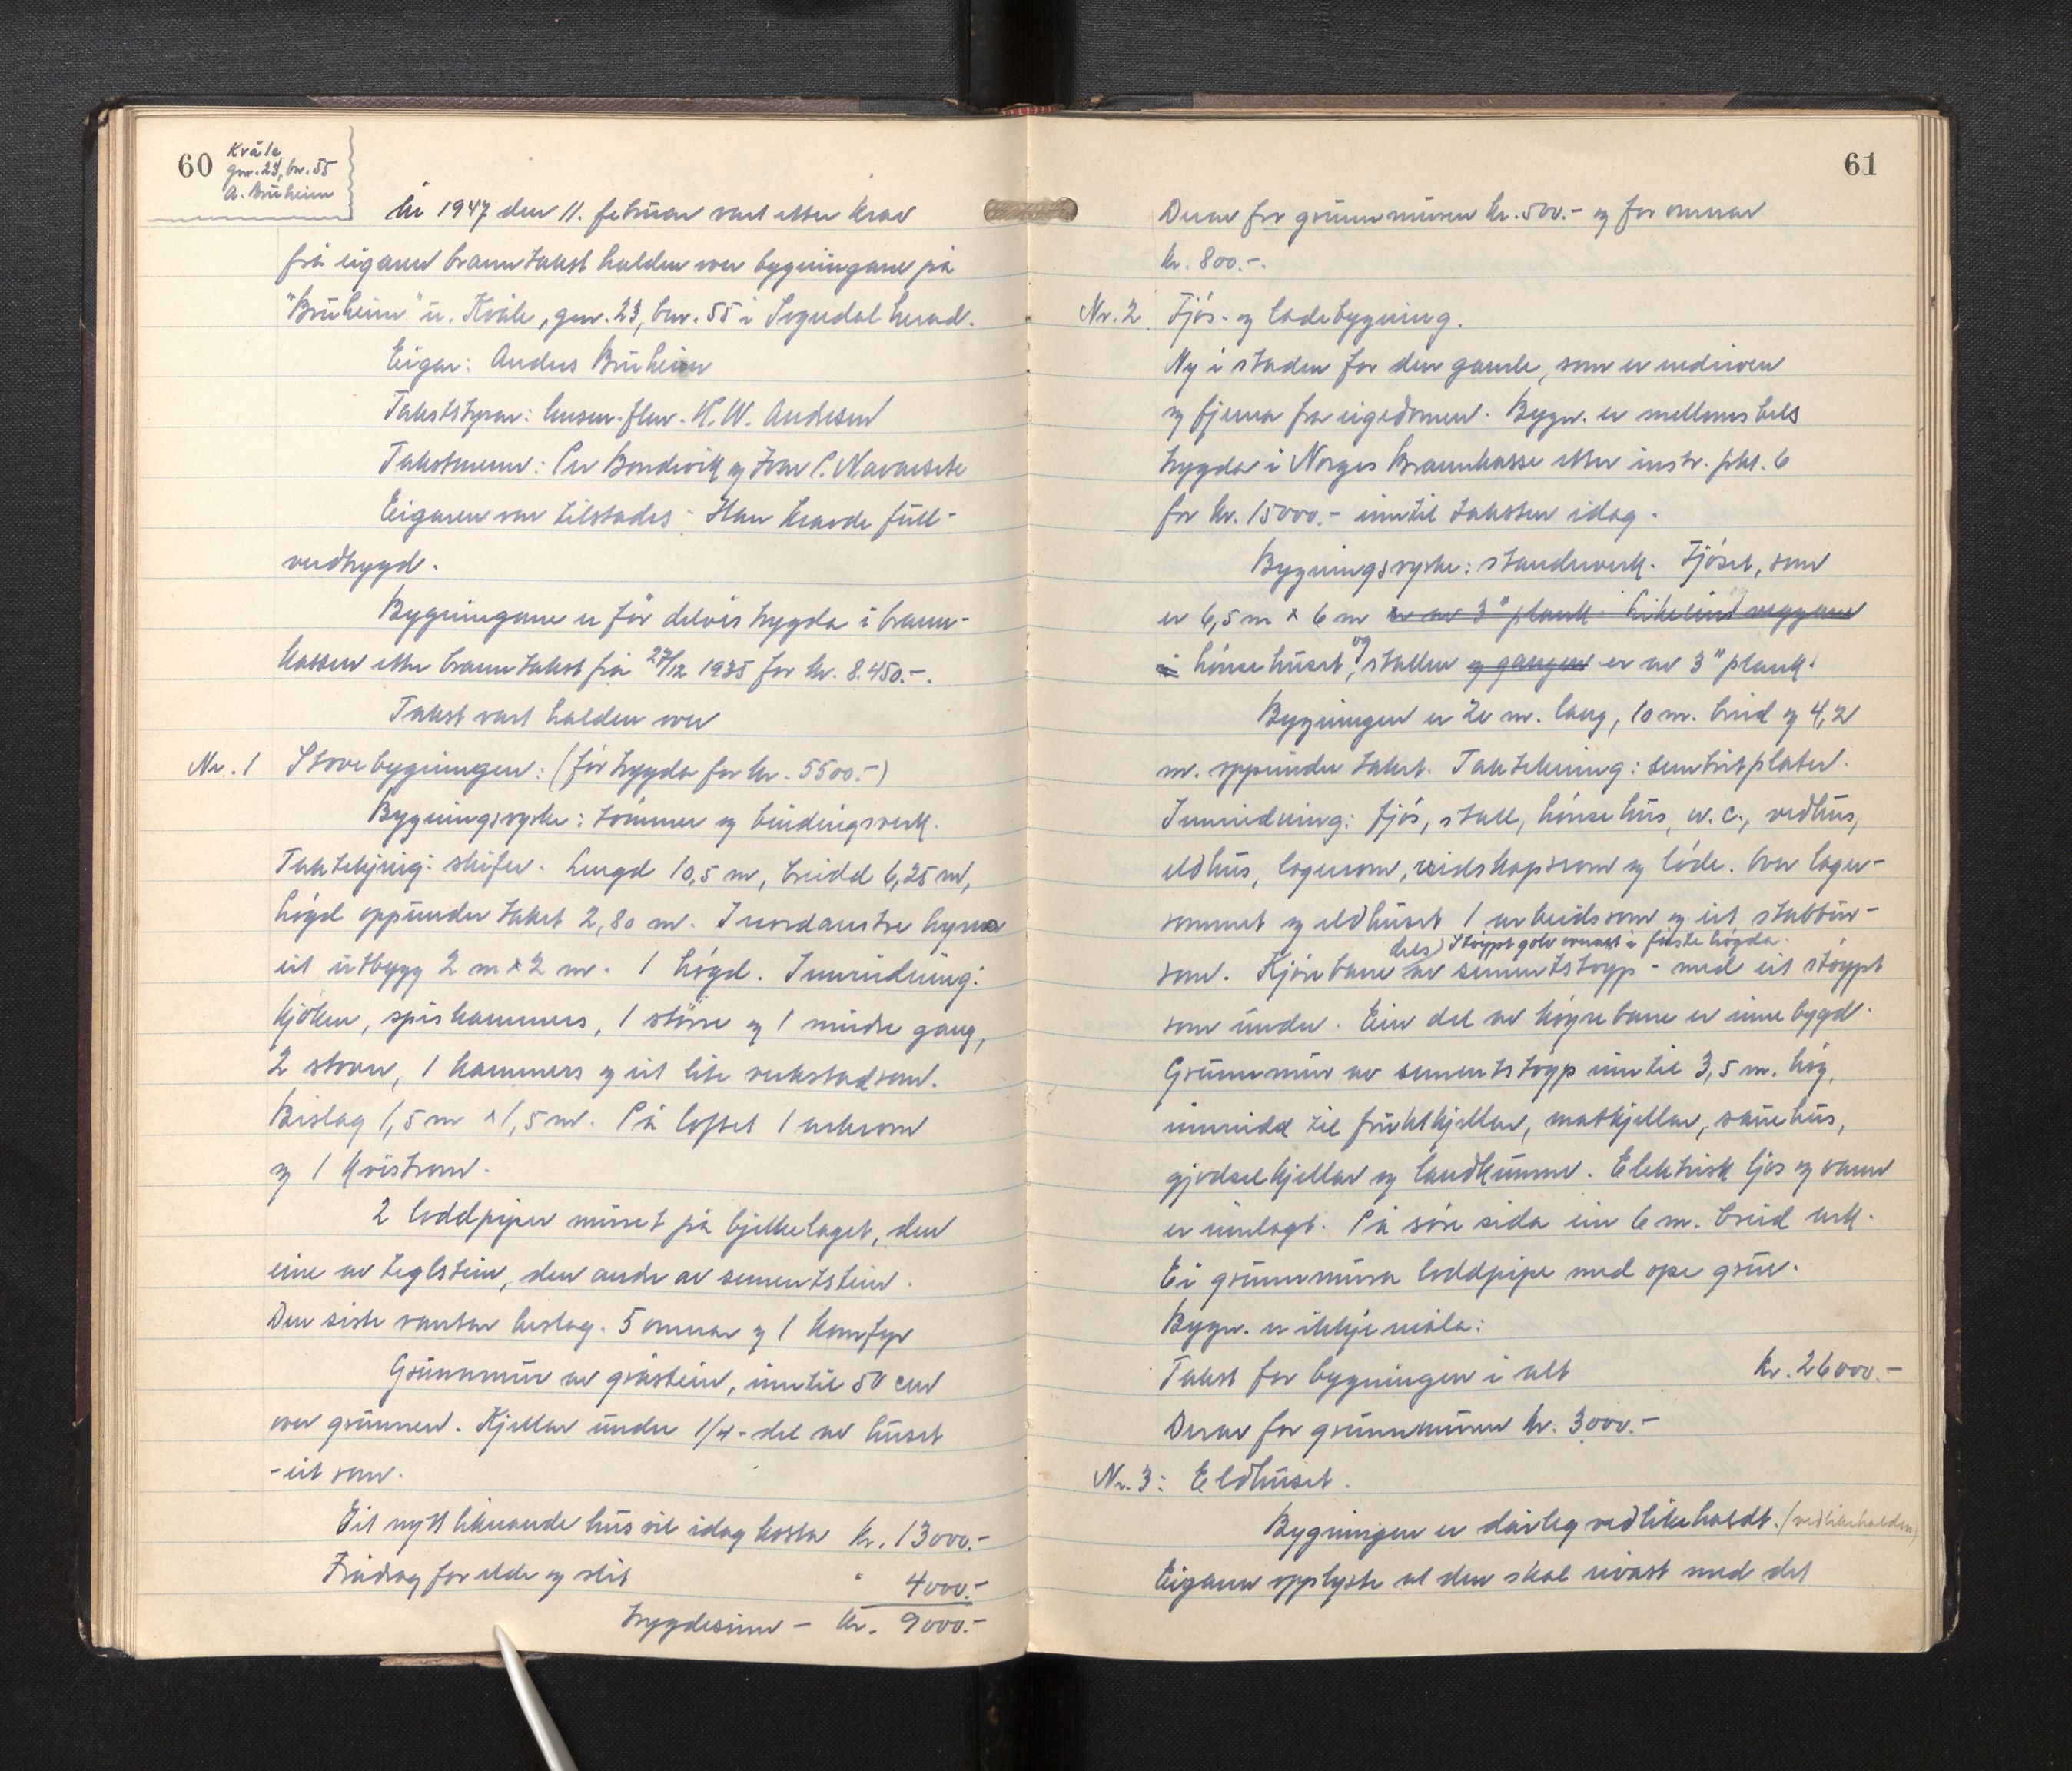 60
Kvåle
gnr. 23, bnr. 55
A. Bruheim
År 1947 den 11. februar vart etter krav
frå eigaren branntakst halden over bygningane på
"Bruheim" u. Kvåle, gnr. 23, bnr. 55 i Sogndal herad.
Eigar: Anders Bruheim
Takststyrar: lensm.flm. H. W. Andresen
Takstmenn: Per Bondevik og Ivar P. Navarsete
Eigaren var tilstades. Han kravde full-
verdtrygd.
Bygningane er før delvis trygda i brann-
kassen etter branntakst frå 27/12 1935 for kr. 8.450.-.
Takst vart halden over
Nr. 1 Stovebygningen: (før trygda for kr. 5500.-)
Bygningsvyrke: tømmer og bindingsverk.
Taktekjing: skifer. Lengd 10,5 m, breidd 6,25 m,
høgd oppunder taket 2,80 m. I nordaustre hyrna
eit utbygg 2 m x 2 m. 1 høgd. Innreidning:
kjøken, spiskammers, 1 större og 1 mindre gang,
2 stover, 1 kammers og eit lite verkstadrom.
Bislag 1,5 m x 1,5 m. På loftet 1 arkrom
og 1 kvistrom.
2 loddpiper murt på bjelkelaget, den
eine av teglstein, den andre av sementstein.
Den siste vantar beslag. 5 omnar og 1 komfyr
Grunnmur av gråstein, inntil 50 cm
over grunnen. Kjellar under 1/4-del av huset
- eit rom.
Eit nytt liknande hus vil idag kosta kr. 13000.-
Frådrag for elde og slit " 4000.-
trygdesum - kr. 9000.-
61
Derav for grunnmuren kr. 500.- og for omnar
kr. 800.-.
Nr. 2 Fjøs- og ladebygning.
Ny i staden for den gamle, som er nedriven
og fjerna fra eigedomen. Bygn. er mellombels
trygda i Norges Brannkasse etter instr. pkt. 6
for kr. 15000.- inntil taksten idag.
Bygningsvyrke: standerverk. Fjøset, som
er 6,5 m x 6 m er av 3" plank. Likeeins veggane
i hønsehuset, og stallen og gangen er av 3" plank.
Bygningen er 20 m. lang, 10 m. breid og 4,2
m. oppunder taket. Taktekning: sementplater.
Innreidning: fjøs, stall, hønsehus, w.c., vedhus,
eldhus, lagerrom, reidskapsrom og løde. Over lager-
rommet og eldhuset 1 arbeidsrom og eit stabbur-
dels) Støypt golv overalt i fyrste høgda.
rom. Kjørebane av sementstøyp - med eit støypt
rom under. Ein del av køyrebane er innebygd.
Grunnmur av sementstøyp inntil 3,5 m. høg,
innreidd til fruktkjellar, matkjellar, sauehus,
gjødselkjellar og landkumme. Elektrisk ljos og vann
er innlagt. På søre sida ein 6 m. breid ark.
Ei grunnmura loddpipe med ope grue.
Bygn. er ikkje måla.
Takst for bygningen i alt kr. 26000.-
Derav for grunnmuren kr. 3000.-
Nr. 3: Eldhuset.
Bygningen er dårleg vedlikehaldt. (vedlikehalden)
Eigaren opplyste at den skal rivast med det